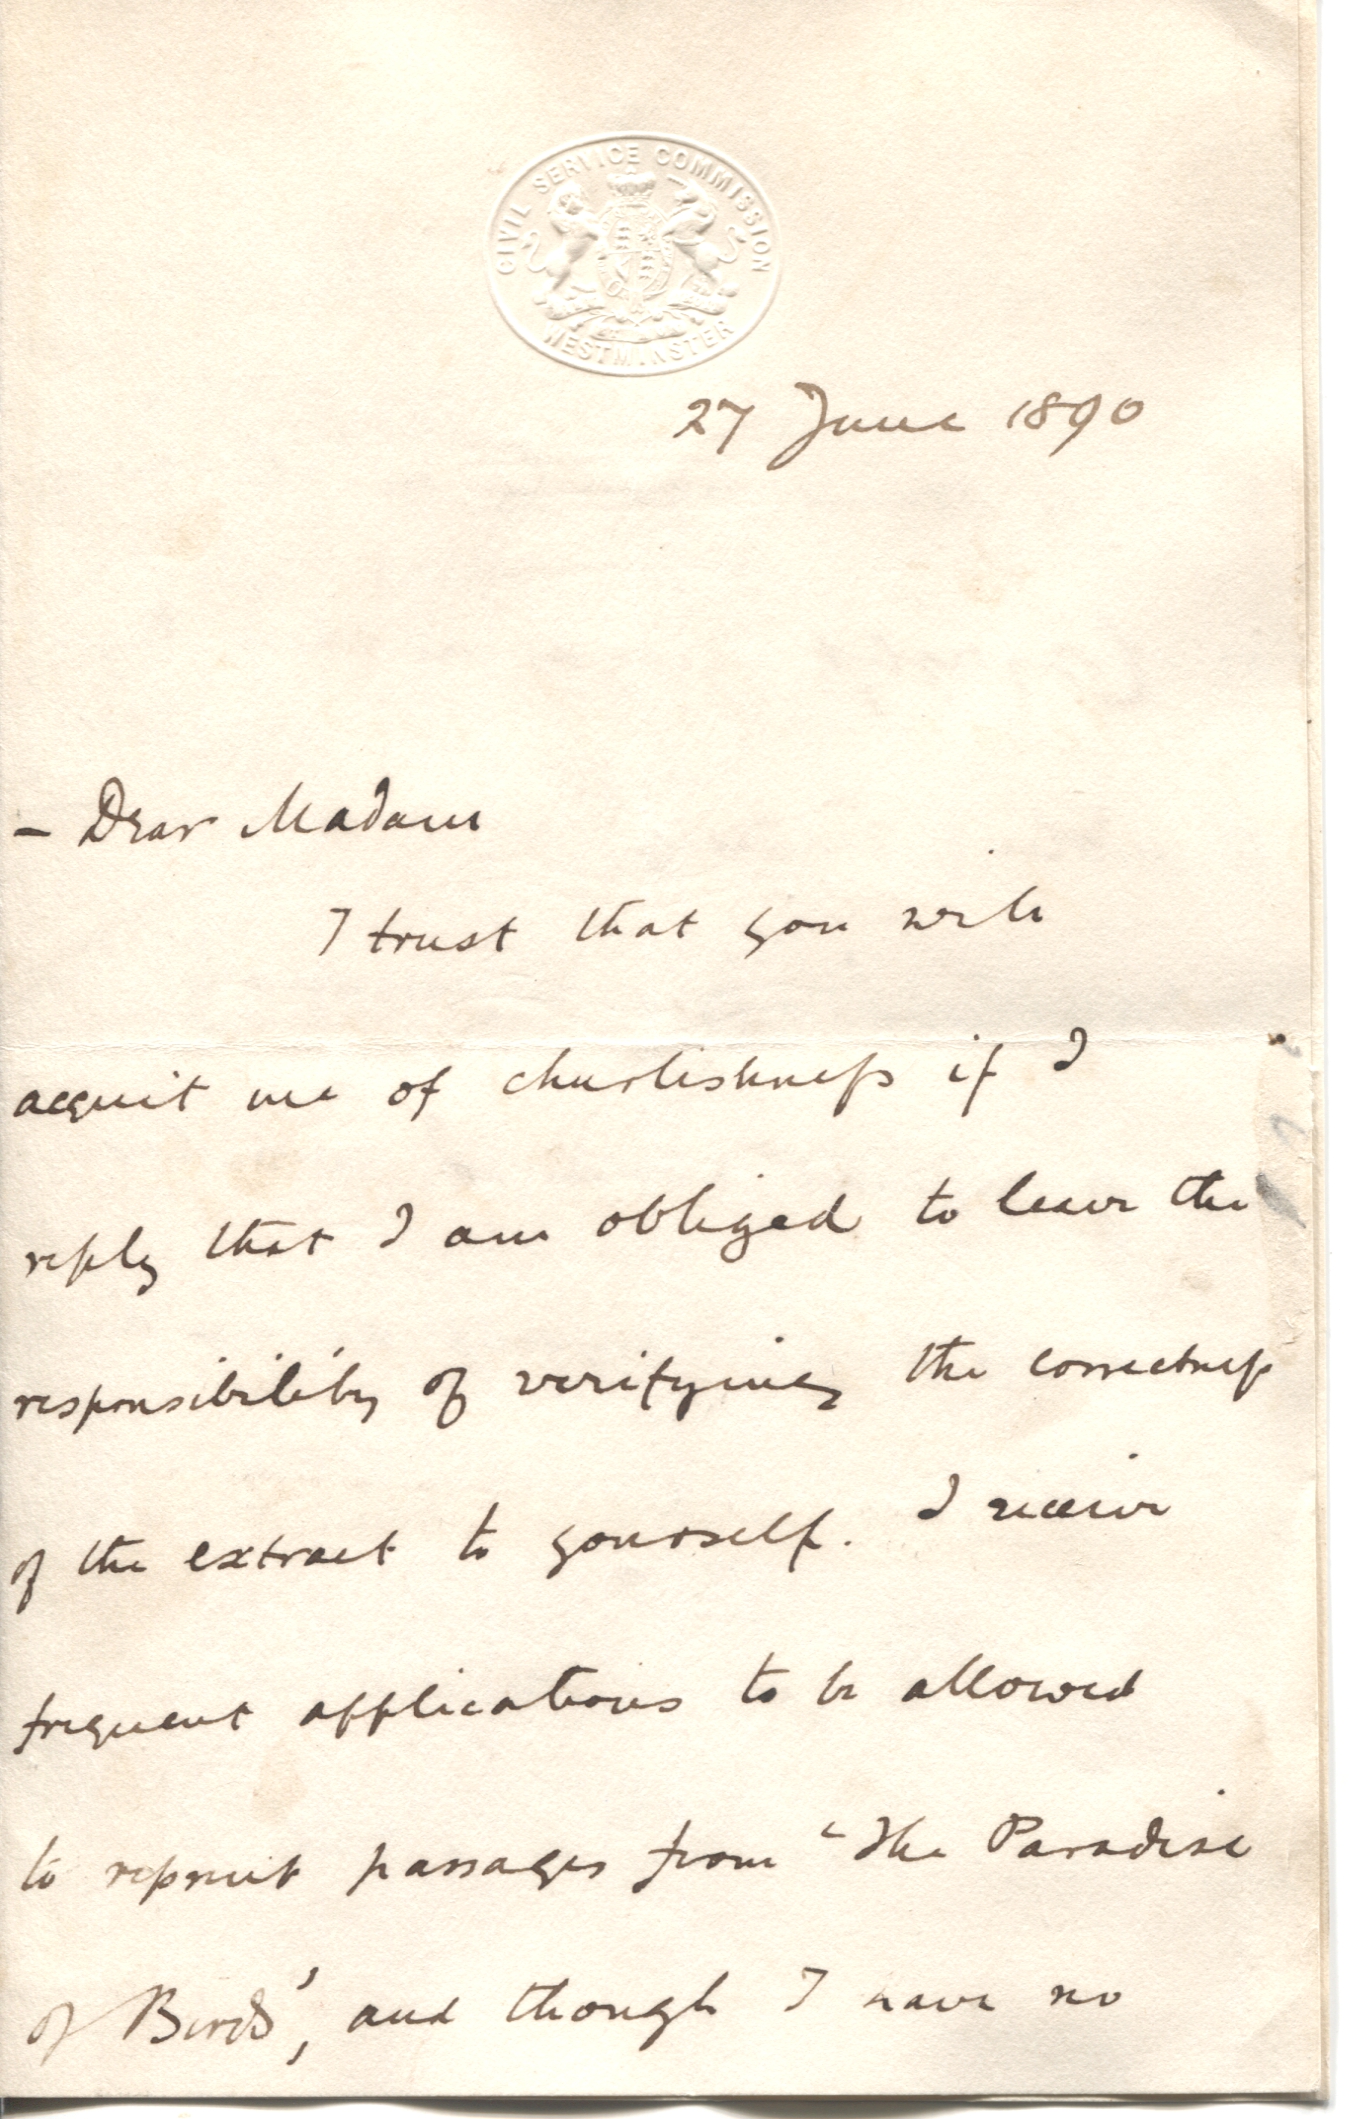 CIVIL SERVICE COMMISSION
WESTMINSTER
27 June 1890
– Dear Madam
I trust that you will
acquit me of churlishness if I
reply that I am obliged to leave the
responsibility of verifying the correctness
of the extract to yourself. I receive
frequent applications to be allowed
to reprint passages from 'The Paradise
of Birds', and though I have no